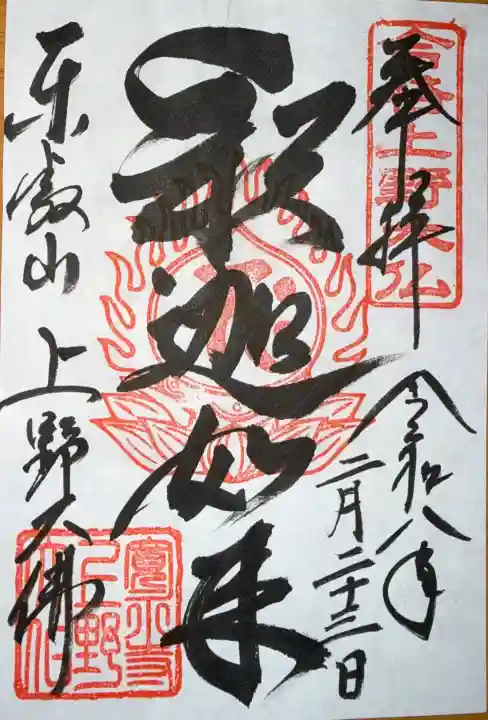 奉拝
令和八年
二月二十三日
釈迦如来
东叡山 上野大佛
上野大仏
寛永寺
上野